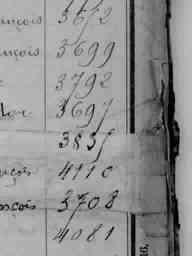 ançois 3672
ançois 3699
3792
3697
3835
nçois 4110
nçois 3708
4081